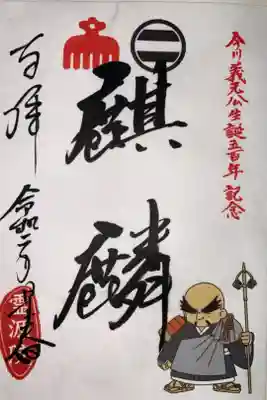 今川義元公生誕五百年記念
麒麟
奉拝
令和二